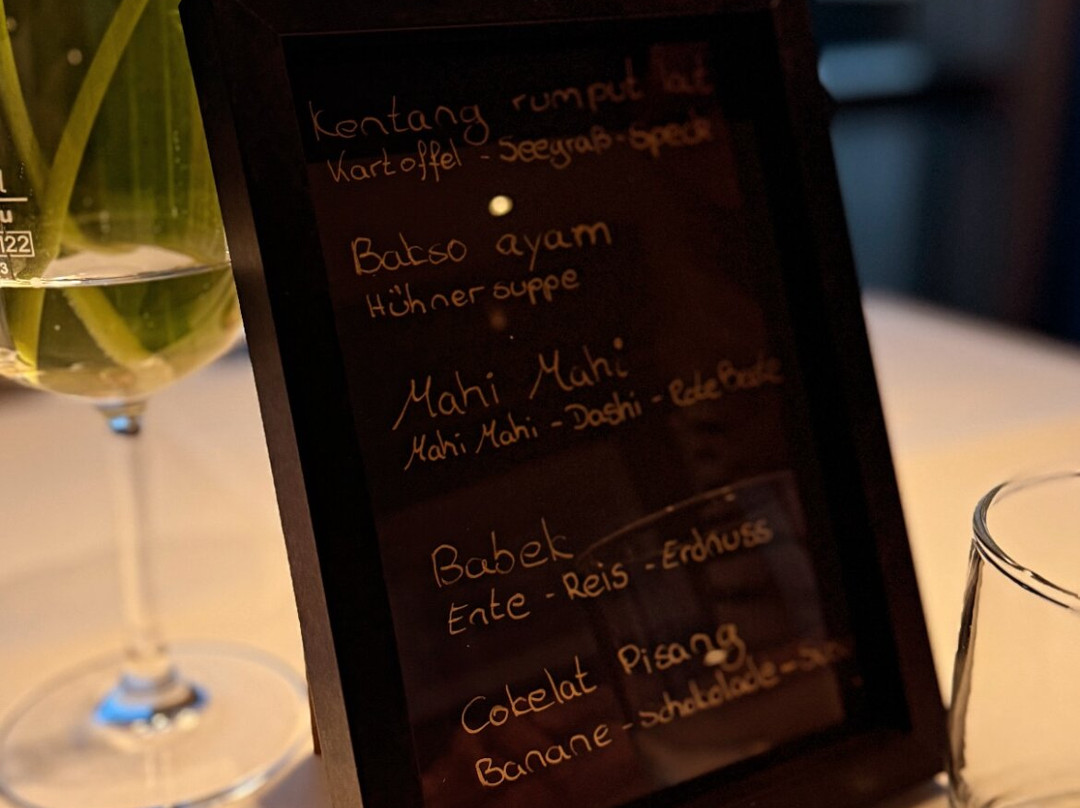 Kentang rumput laut
Kartoffel - Seegraß - Speck
Bakso ayam
Hühnersuppe
Mahi Mahi
Mahi Mahi - Dashi - Rote Beete
Babek
Ente - Reis - Erdnuss
Cokelat Pisang
Banane - Schokolade -
122